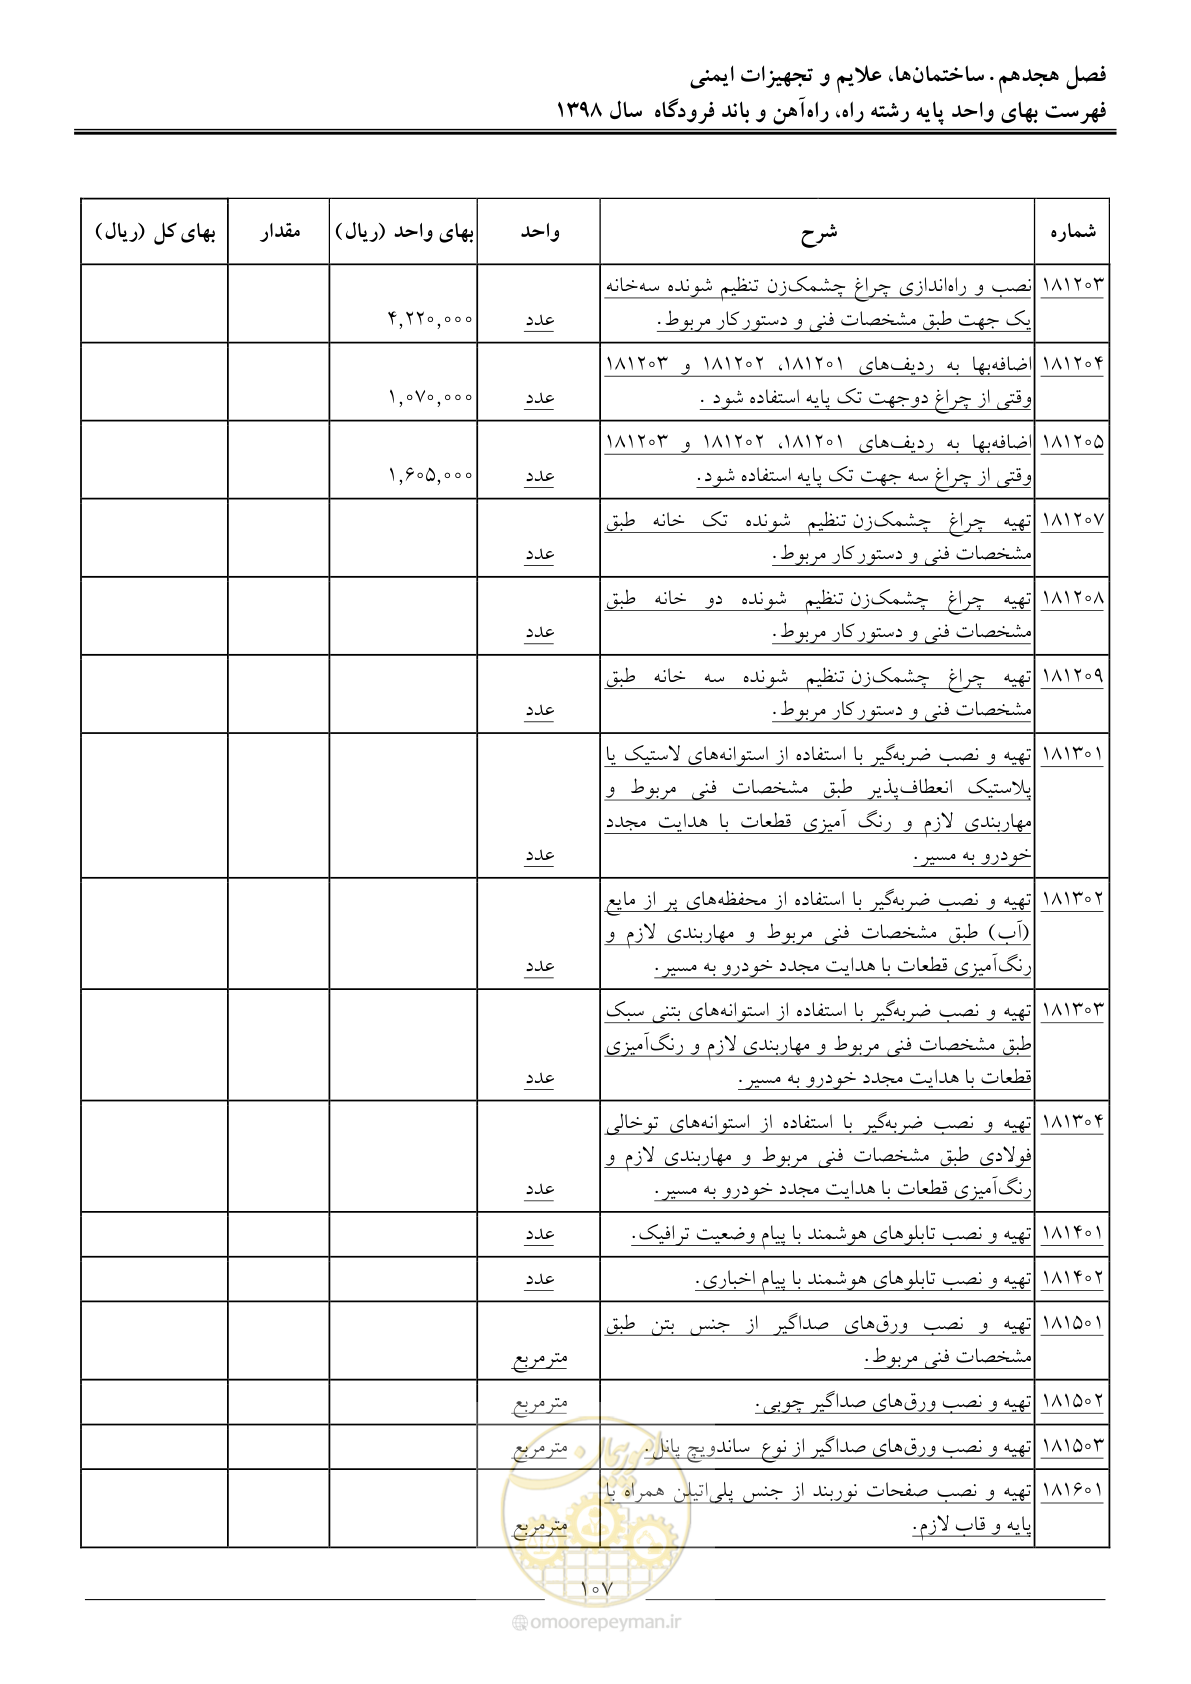 فصل هجدهم. ساختمان‌ها، علایم و تجهیزات ایمنی
فهرست بهای واحد پایه رشته راه، راه‌آهن و باند فرودگاه سال ۱۳۹۸
شماره شرح واحد بهای واحد (ریال) مقدار بهای کل (ریال)
۱۸۱۲۰۳ نصب و راه‌اندازی چراغ چشمک‌زن تنظیم شونده سه‌خانه
یک جهت طبق مشخصات فنی و دستورکار مربوط. عدد ۴,۲۲۰,۰۰۰
۱۸۱۲۰۴ اضافه‌بها به ردیف‌های ۱۸۱۲۰۱، ۱۸۱۲۰۲ و ۱۸۱۲۰۳
وقتی از چراغ دوجهت تک پایه استفاده شود . عدد ۱,۰۷۰,۰۰۰
۱۸۱۲۰۵ اضافه‌بها به ردیف‌های ۱۸۱۲۰۱، ۱۸۱۲۰۲ و ۱۸۱۲۰۳
وقتی از چراغ سه جهت تک پایه استفاده شود. عدد ۱,۶۰۵,۰۰۰
۱۸۱۲۰۷ تهیه چراغ چشمک‌زن تنظیم شونده تک خانه طبق
مشخصات فنی و دستورکار مربوط. عدد
۱۸۱۲۰۸ تهیه چراغ چشمک‌زن تنظیم شونده دو خانه طبق
مشخصات فنی و دستورکار مربوط. عدد
۱۸۱۲۰۹ تهیه چراغ چشمک‌زن تنظیم شونده سه خانه طبق
مشخصات فنی و دستورکار مربوط. عدد
۱۸۱۳۰۱ تهیه و نصب ضربه‌گیر با استفاده از استوانه‌های لاستیک یا
پلاستیک انعطاف‌پذیر طبق مشخصات فنی مربوط و
مهاربندی لازم و رنگ آمیزی قطعات با هدایت مجدد
خودرو به مسیر. عدد
۱۸۱۳۰۲ تهیه و نصب ضربه‌گیر با استفاده از محفظه‌های پر از مایع
(آب) طبق مشخصات فنی مربوط و مهاربندی لازم و
رنگ‌آمیزی قطعات با هدایت مجدد خودرو به مسیر. عدد
۱۸۱۳۰۳ تهیه و نصب ضربه‌گیر با استفاده از استوانه‌های بتنی سبک
طبق مشخصات فنی مربوط و مهاربندی لازم و رنگ‌آمیزی
قطعات با هدایت مجدد خودرو به مسیر. عدد
۱۸۱۳۰۴ تهیه و نصب ضربه‌گیر با استفاده از استوانه‌های توخالی
فولادی طبق مشخصات فنی مربوط و مهاربندی لازم و
رنگ‌آمیزی قطعات با هدایت مجدد خودرو به مسیر. عدد
۱۸۱۴۰۱ تهیه و نصب تابلوهای هوشمند با پیام وضعیت ترافیک. عدد
۱۸۱۴۰۲ تهیه و نصب تابلوهای هوشمند با پیام اخباری. عدد
۱۸۱۵۰۱ تهیه و نصب ورق‌های صداگیر از جنس بتن طبق
مشخصات فنی مربوط. مترمربع
۱۸۱۵۰۲ تهیه و نصب ورق‌های صداگیر چوبی. مترمربع
۱۸۱۵۰۳ تهیه و نصب ورق‌های صداگیر از نوع ساندویچ پانل. مترمربع
۱۸۱۶۰۱ تهیه و نصب صفحات نوربند از جنس پلی‌اتیلن همراه با
پایه و قاب لازم. مترمربع
امور پیمان
۱۰۷
omoorepeyman.ir